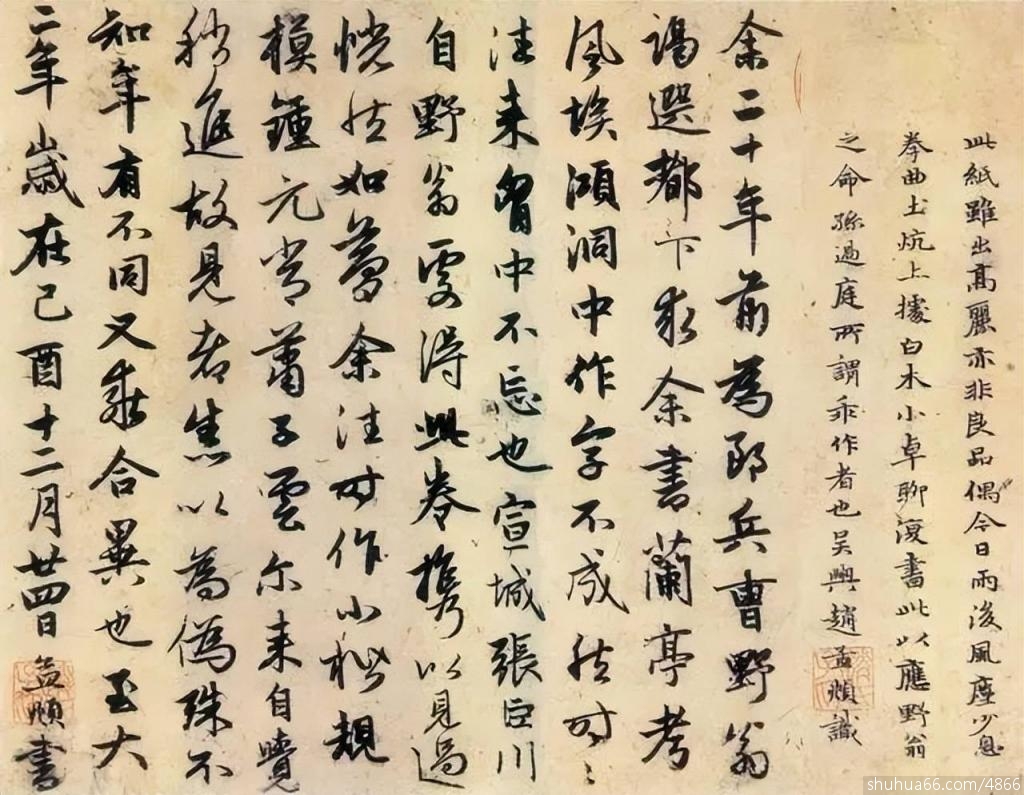 此紙雖出高麗亦非良品偶今日雨後風塵少息
拳曲土炕上據白木小卓聊復書此以應野翁
之命孫過庭所謂乖作者也吴興趙孟頫識
余二十年前為郎兵曹野翁
謁選都下求余書蘭亭考
風埃澒洞中作字不成然時〻
往来胷中不忘也宣城張臣川
自野翁䖏得此卷擕以見過
恍然如夢余往時作小楷規
模鍾元常蕭子雲尓来自覺
稍進故見者焦以為偽殊不
知年有不同又乖合異也至大
二年歲在己酉十二月廿四日孟頫書
shuhua66.com/4866